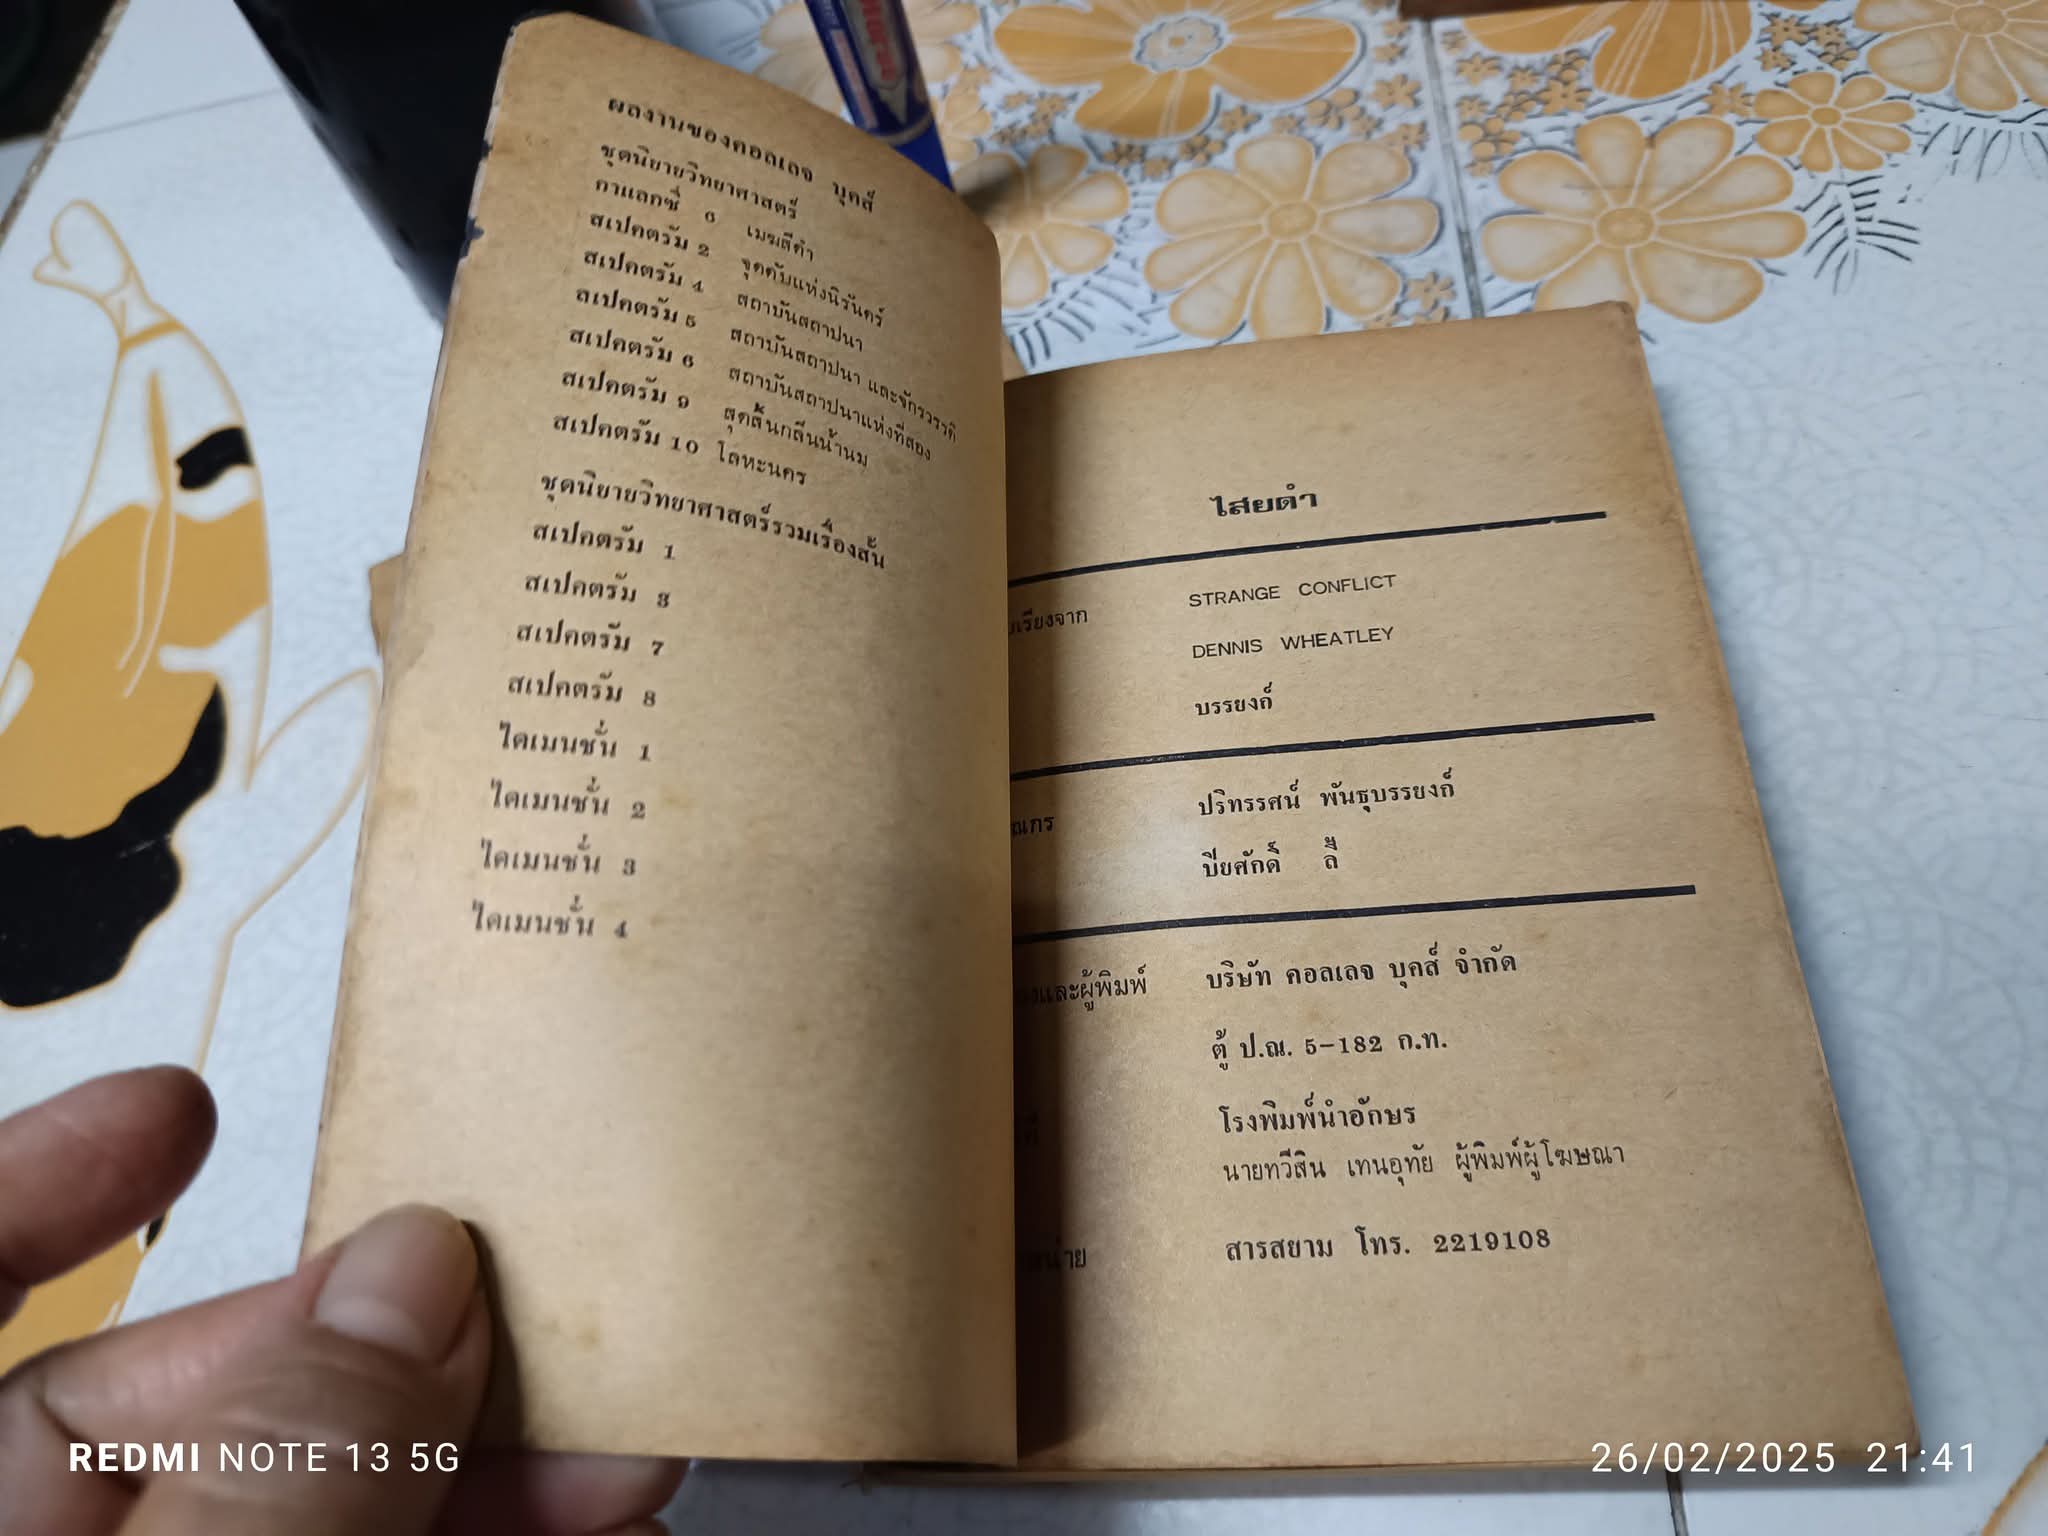 ผลงานของคอลเลจ บุคส์
ชุดนิยายวิทยาศาสตร์
กาแลกซี่ 6 เมฆสีดำ
สเปคตรัม 2 จุดดับแห่งนิรันดร์
สเปคตรัม 4 สถาบันสถาปนา
สเปคตรัม 5 สถาบันสถาปนา และจักรวรรดิ
สเปคตรัม 6 สถาบันสถาปนาแห่งที่สอง
สเปคตรัม 9 สุดสิ้นกลิ่นน้ำนม
สเปคตรัม 10 โลหะนคร
ชุดนิยายวิทยาศาสตร์รวมเรื่องสั้น
สเปคตรัม 1
สเปคตรัม 3
สเปคตรัม 7
สเปคตรัม 8
ไดเมนชั่น 1
ไดเมนชั่น 2
ไดเมนชั่น 3
ไดเมนชั่น 4
ไสยดำ
เรียงจาก STRANGE CONFLICT
DENNIS WHEATLEY
บรรยงก์
ณกร ปริทรรศน์ พันธุบรรยงก์
ปิยศักดิ์ ลี้
และผู้พิมพ์ บริษัท คอลเลจ บุคส์ จำกัด
ตู้ ป.ณ. 5-182 ก.ท.
โรงพิมพ์นำอักษร
นายทวีสิน เทนอุทัย ผู้พิมพ์ผู้โฆษณา
น่าย สารสยาม โทร. 2219108
REDMI NOTE 13 5G
26/02/2025 21:41